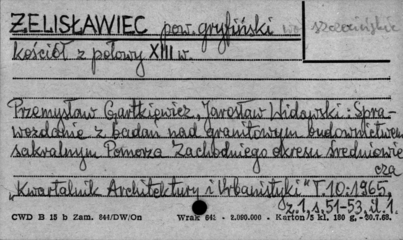 ŻELISŁAWIEC pow. gryfiński
szczecińskie
kościół z połowy XIII w.
Przemysław Gartkiewicz, Jarosław Widawski: Spra-
wozdanie z badań nad granitowym budownictwem
sakralnym Pomorza Zachodniego okresu średniowie
cza
„Kwartalnik Architektury i Urbanistyki" T. 10: 1965,
z. 1, s. 51-53, il. 1.
CWD B 15 b Zam. 844/DW/On Wrak 641 - 2.000.000 - Karton 5 kl. 180 g. - 30.7.63.